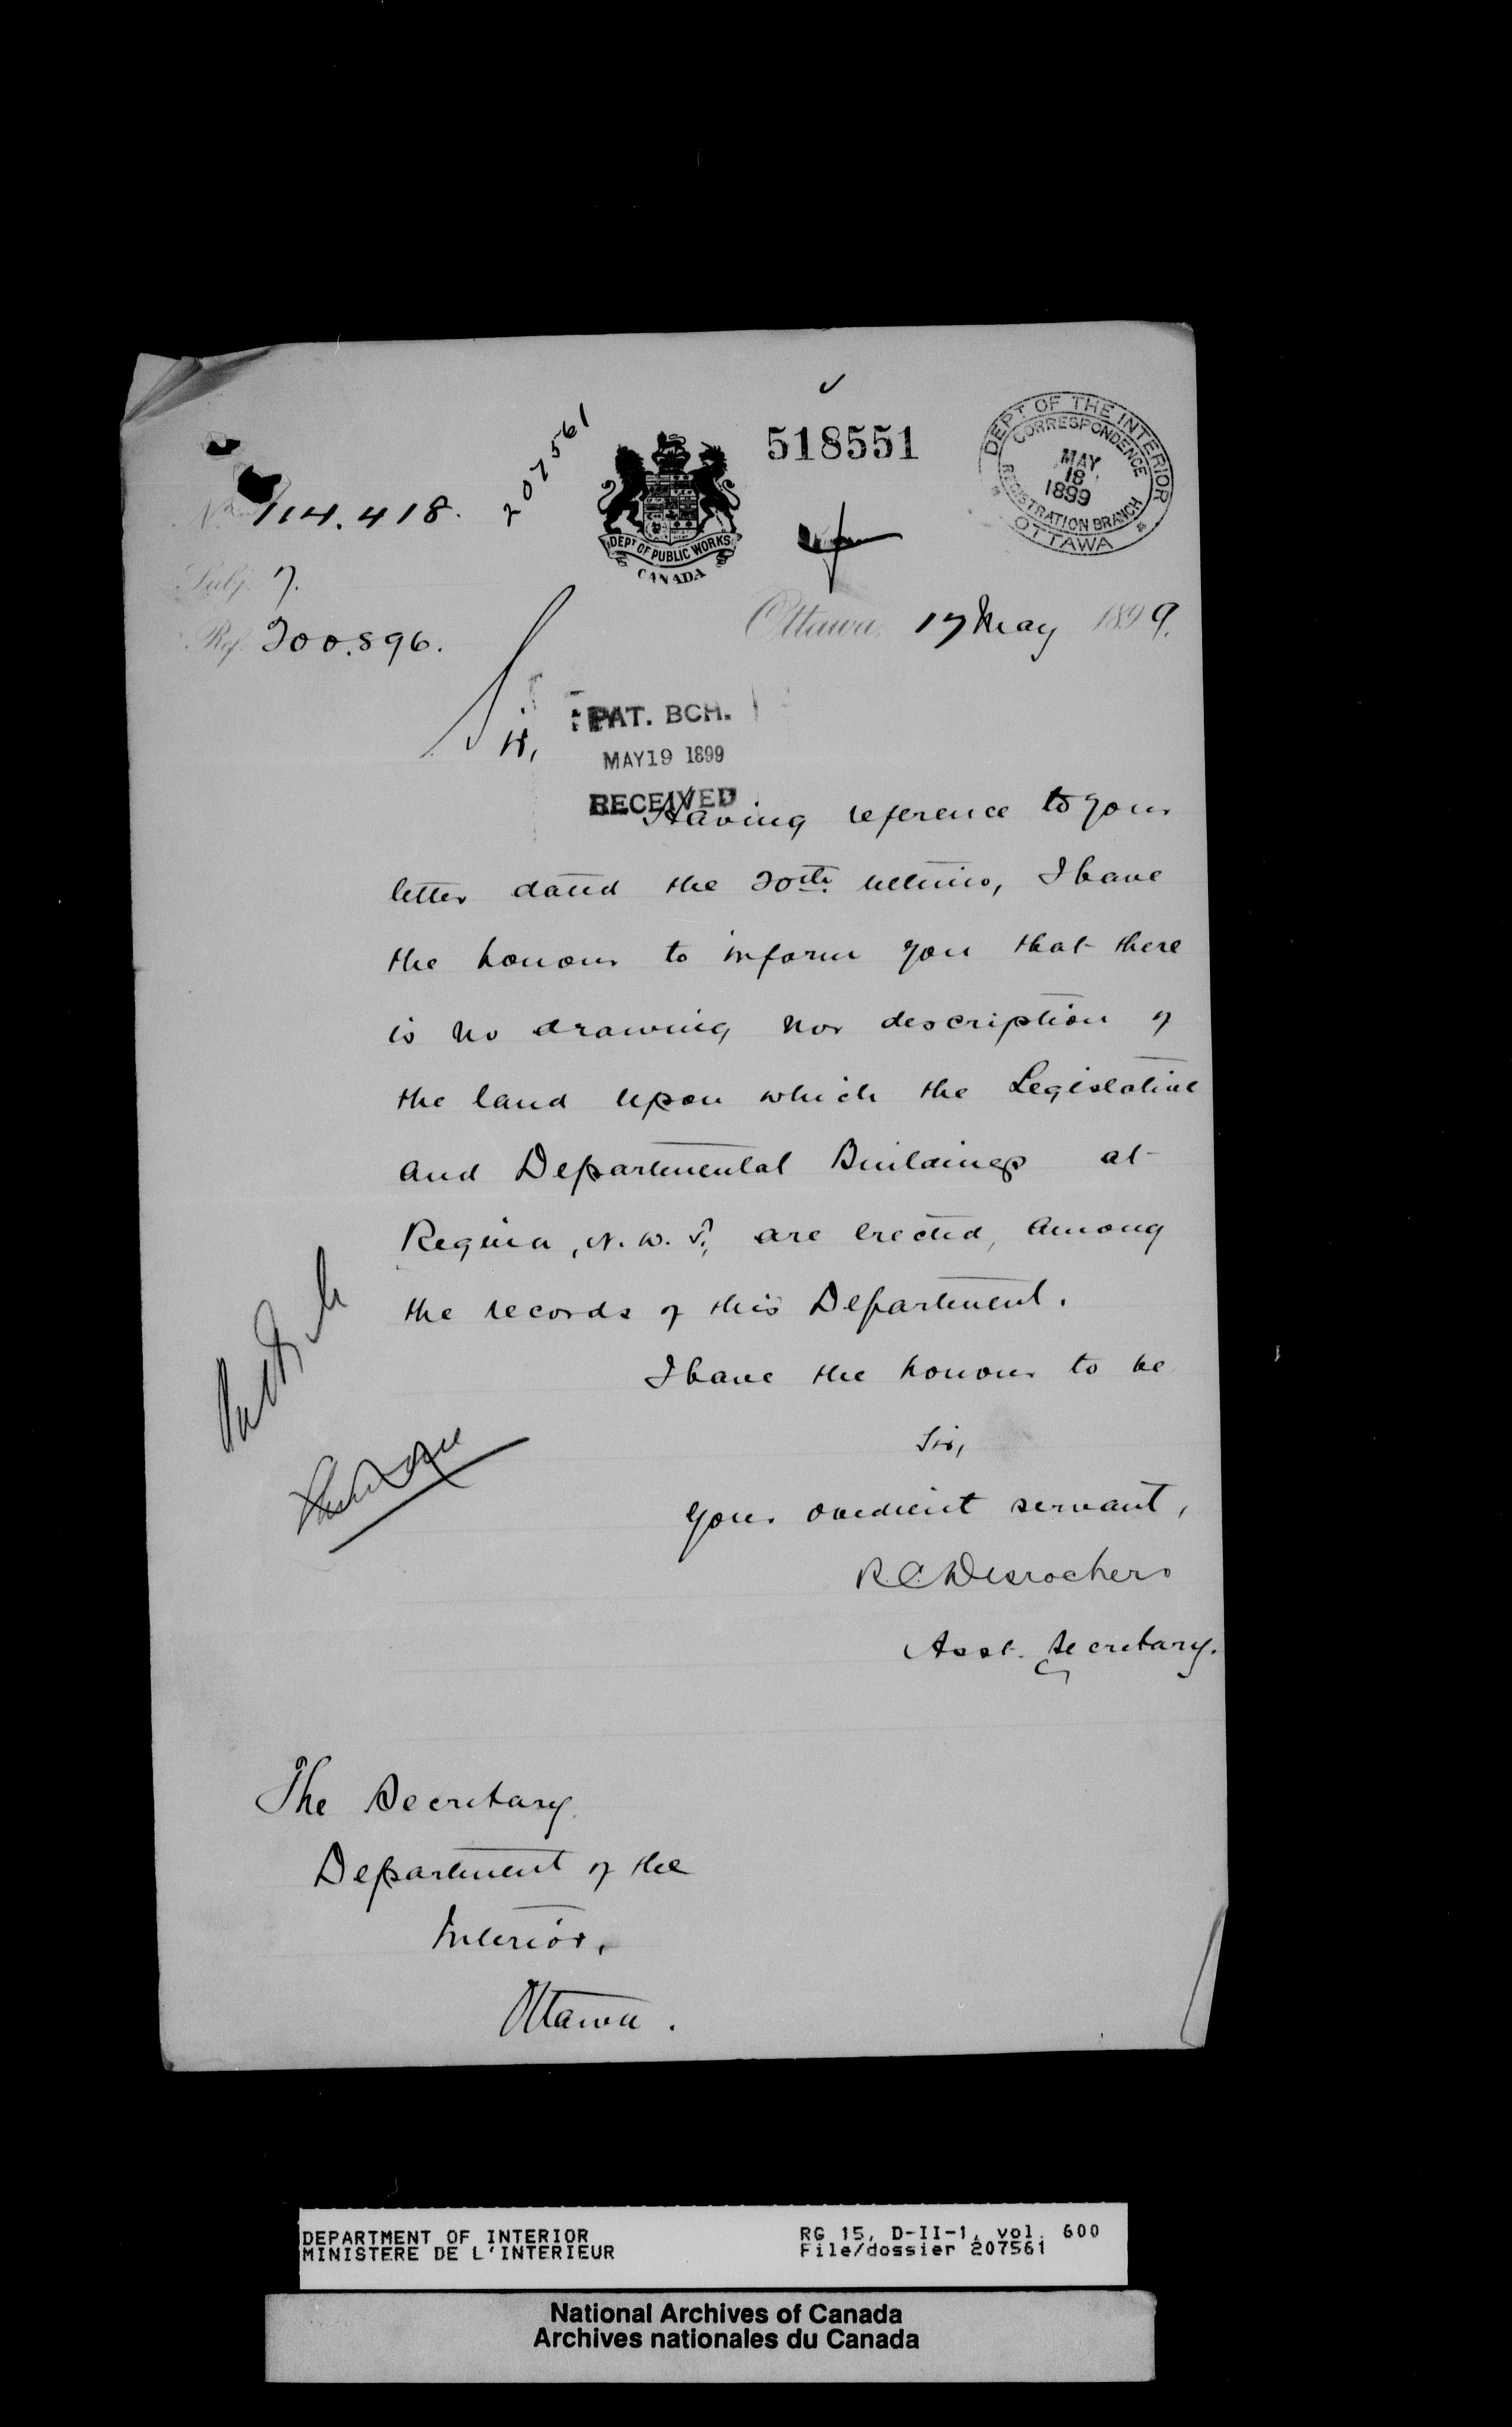 518551
207561
DEPT OF THE INTERIOR
CORRESPONDENCE
MAY
18
1899
REGISTRATION BRANCH
OTTAWA
No 114.418.
DEPT OF PUBLIC WORKS
CANADA
Subj. 7.
Ottawa, 17 May 1899.
Ref. 200.896.
Sir,
PAT. BCH.
MAY 19 1899
RECEIVED
Having reference to your
letter dated the 20th ultimo, I have
the honour to inform you that there
is no drawing nor description of
the land upon which the Legislative
and Departmental Buildings at
Regina, N.W.T., are erected, among
the records of this Department.
I have the honour to be
Sir,
Your obedient servant,
R.C. Desrochers
Asst. Secretary.
The Secretary
Department of the
Interior,
Ottawa.
DEPARTMENT OF INTERIOR
MINISTERE DE L'INTERIEUR
RG 15, D-II-1, vol. 600
File/dossier 207561
National Archives of Canada
Archives nationales du Canada